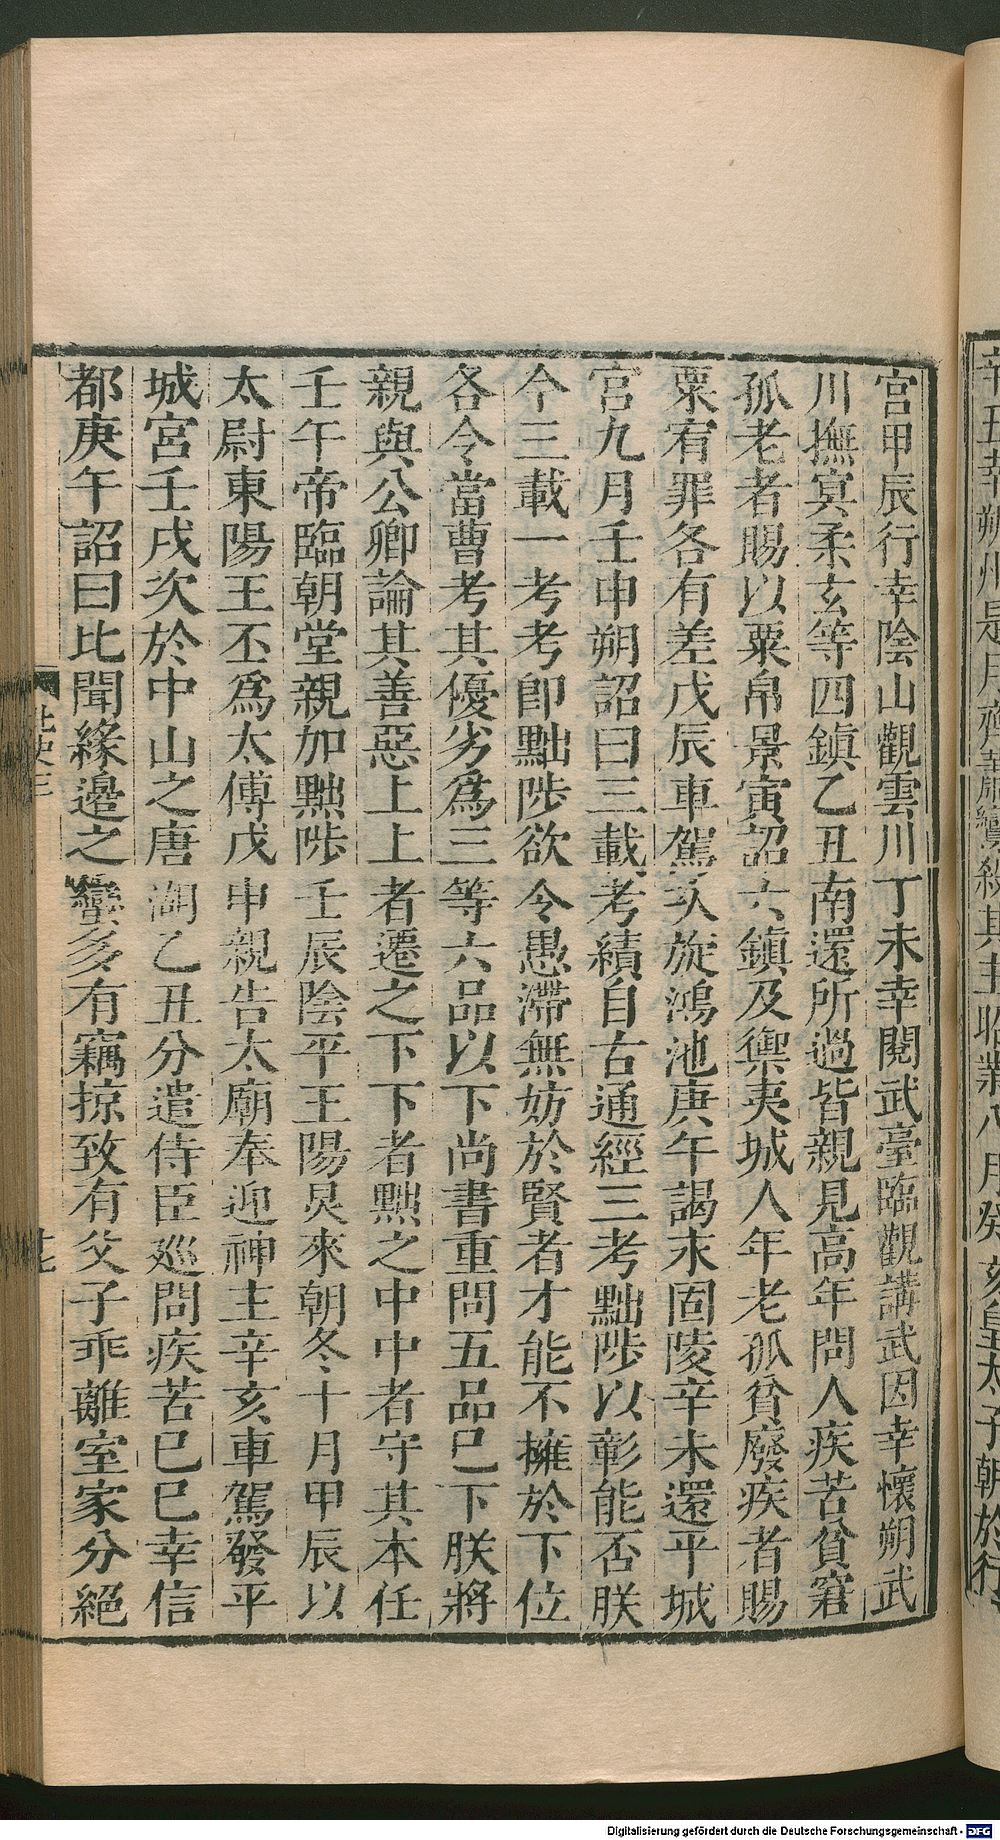 宮甲辰行幸陰山觀雲川丁未幸閱武臺臨觀講武因幸懷朔武
川撫㝠柔玄等四鎮乙丑南還所過皆親見高年問人疾苦貧窘
孤老者賜以粟帛景寅詔六鎮及禦夷城人年老孤貧廢疾者賜
粟宥罪各有差戊辰車駕次旋鴻池庚午謁永固陵辛未還平城
宮九月壬申朔詔曰三載考績自古通經三考黜陟以彰能否朕
今三載一考考卽黜陟欲令愚滯無妨於賢者才能不擁於下位
各令當曹考其優劣爲三等六品以下尚書重問五品已下朕將
親與公卿論其善惡上上者遷之下下者黜之中中者守其本任
壬午帝臨朝堂親加黜陟壬辰陰平王陽炅來朝冬十月甲辰以
太尉東陽王丕爲太傅戊申親告太廟奉迎神主辛亥車駕發平
城宮壬戌次於中山之唐湖乙丑分遣侍臣廵問疾苦已巳幸信
都庚午詔曰比聞緣邊之蠻多有竊掠致有父子乖離室家分絕
辛丑幸朔州是月齊蕭鸞殺其主昭業八月癸亥皇太子朝於行
Digitalisierung gefördert durch die Deutsche Forschungsgemeinschaft - DFG